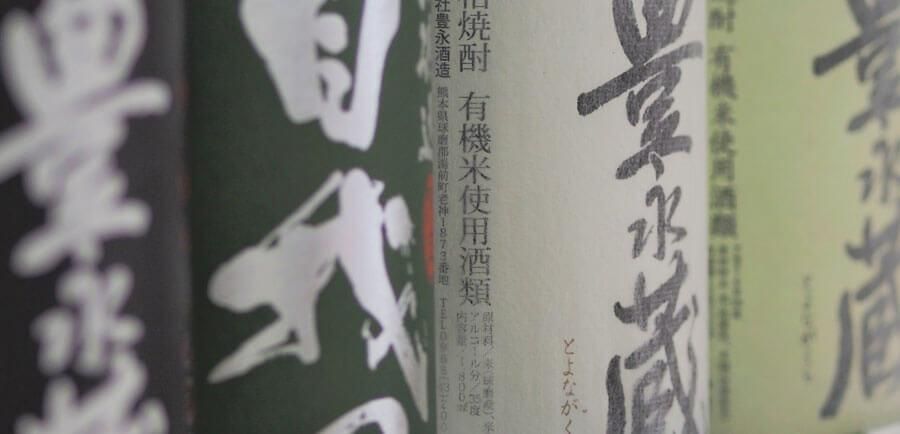 豊永蔵
自我
社豊永酒造
熊本県球磨郡湯前町老神1873番地
格焼酎 有機米使用酒類
原材料／米(球磨産)、米
アルコール分／35度
内容量／1800㎖
豊永蔵
とよながく
酎 有機米使用酒類
豊永蔵